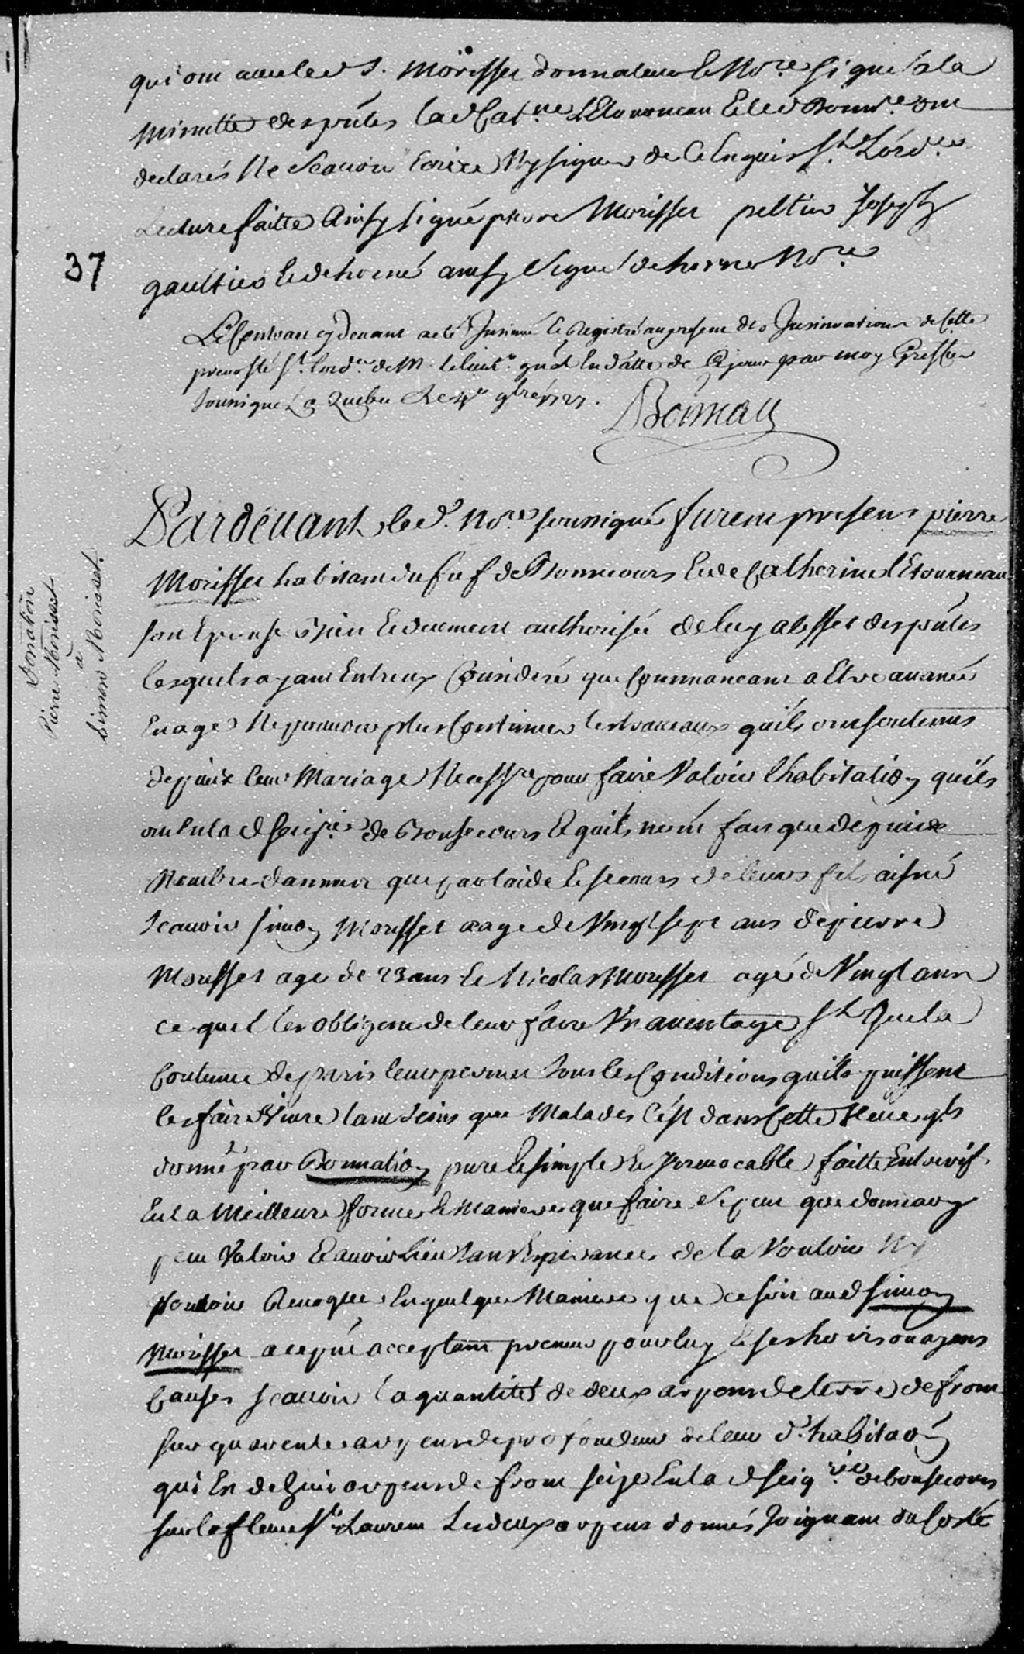 qui ont avec led S. Morisset donnateur & No.re signé à la
minutte des pntes lad Cat.ne Letourneau & led donn.re ont
declarés ne scavoir Ecrire ny signer de ce Enquis St Lord.ce
Lecture faitte ainsy signé pierre Morisset peltier Joseph
37
gaultier & dehorné ainsy signé dehorné No.re
Le Contrau cy devant a eté Insinué & Registré au present des Insinuations de Cette
prevosté St Lord.ce de M. le Lieut.t gnal En datte de ce jour par moy Greffier
soussigné à Quebec Le
Boisseau
Pardevant led. No.re soussigné furent presens pierre
Morisset habitant du fief de Bonsecours & de Catherine Letourneau
son Epouse bien & deuement authorisée de luy a leffet des pntes
Lesquels ayant Entreux Consideré que Commancant a Estre avancé
En age & Ne pouvoir plus Continuer les travaux quils ont soutenus
depuis leur Mariage Necess.re pour faire Valoir l'habitation quils
ont En la d seig.rie de Bonsecours & quils nont fait que depuis
Nombre dannées que par l'aide & secours de leurs fils aisné
scavoir simon Morisset agé de Vingt sept ans de pierre
Morisset agé de 23 ans & Nicolas Morisset agé de Vingt ans
ce quil les obligent de leur faire Un aventage St que la
Coutume de paris leur permet sous les Conditions quils puissent
les faire Vivre tant sains que Malades C'est dans Cette Veüe quils
donné par Donnation pure & simple & Irrevocable faitte Entrevifs
En la Meilleure forme & Maniere que faire se peut que donnation
peut Valoir & avoir Lieu sans Esperances de la Vouloir Ny
pouvoir Revoquer En quelque Maniere que ce soit aud simon
Morisset a ce pnt acceptant preneur pour luy & ses hoirs ou ayans
Causes scavoir la quantité de deux arpens de terre de front
sur quarente arpens de profondeur de leur d. habitaon
qui En de huit arpens de front scize En la d seig.rie de bonsecours
sur le fleuve St Laurent Les deux arpens donnés Joignant du Costé
Donation
Pierre Morisset
à
Simon Morisset